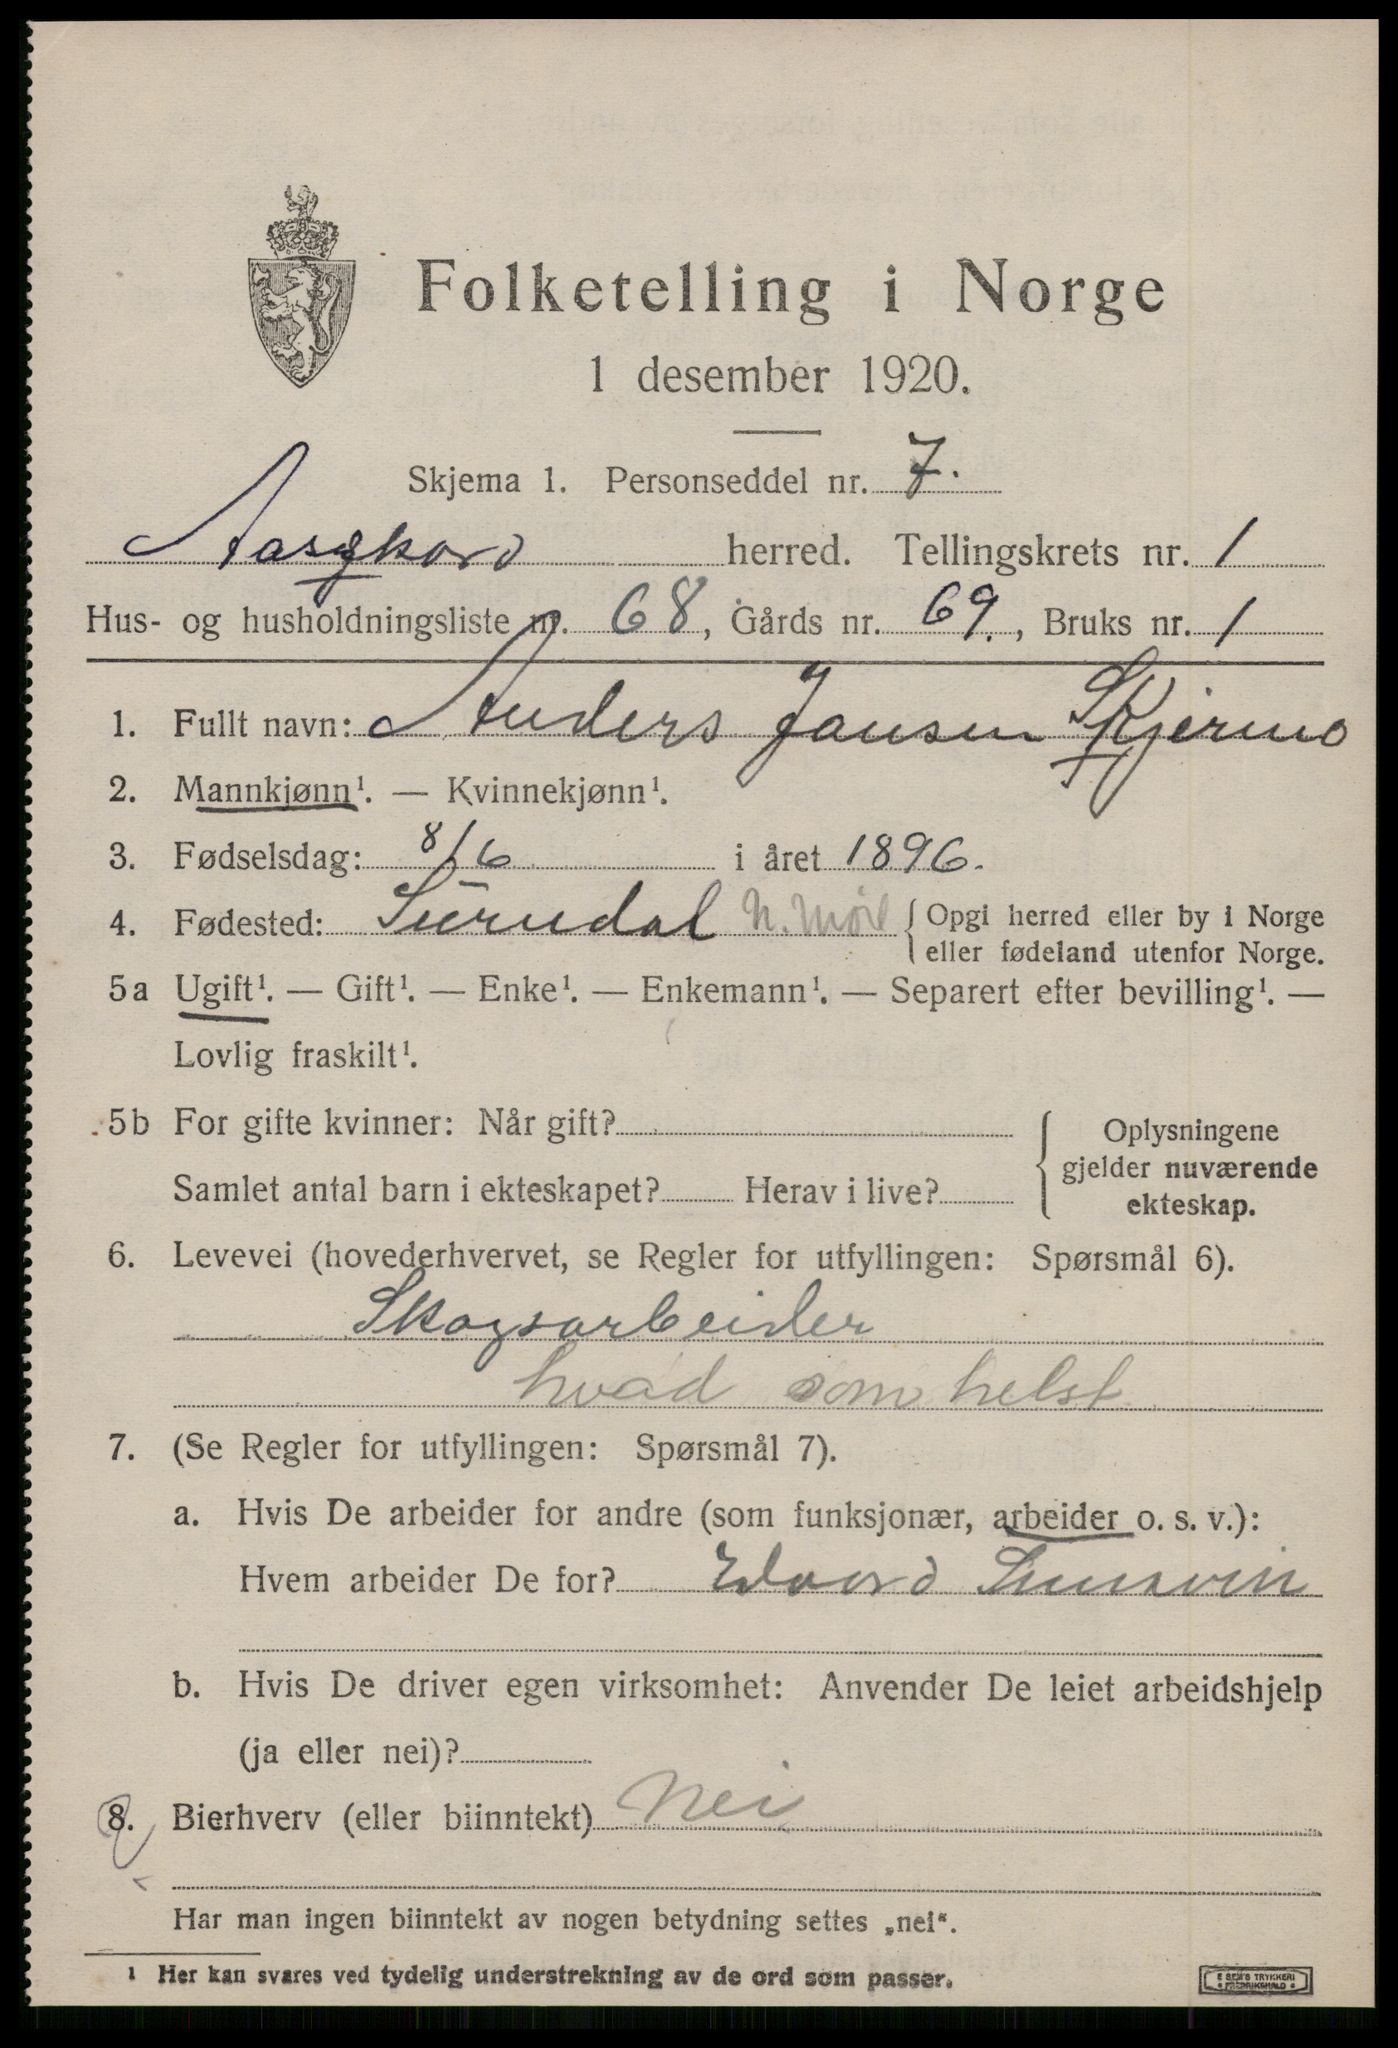 Folketelling i Norge
1 desember 1920.
Skjema 1. Personseddel nr. 7.
Aasskard herred. Tellingskrets nr. 1
Hus- og husholdningsliste nr. 68, Gårds nr. 69., Bruks nr. 1
1. Fullt navn: Anders Jansen Skjermo
2. Mannkjønn¹. — Kvinnekjønn¹.
3. Fødselsdag: 8/6 i året 1896.
4. Fødested: Surndal N. Møre { Opgi herred eller by i Norge
eller fødeland utenfor Norge.
5a Ugift¹. — Gift¹. — Enke¹. — Enkemann¹. — Separert efter bevilling¹. —
Lovlig fraskilt¹.
5b For gifte kvinner: Når gift?
Samlet antal barn i ekteskapet? Herav i live?
{ Oplysningene
gjelder nuværende
ekteskap.
6. Levevei (hovederhvervet, se Regler for utfyllingen: Spørsmål 6).
Skogsarbeider
hvad som helst
7. (Se Regler for utfyllingen: Spørsmål 7).
a. Hvis De arbeider for andre (som funksjonær, arbeider o. s. v.):
Hvem arbeider De for? Edvard
b. Hvis De driver egen virksomhet: Anvender De leiet arbeidshjelp
(ja eller nei)?
8. Bierhverv (eller biinntekt) Nei
Har man ingen biinntekt av nogen betydning settes „nei“.
¹ Her kan svares ved tydelig understrekning av de ord som passer.
E SEM'S TRYKKERI
FREDRIKSHALD